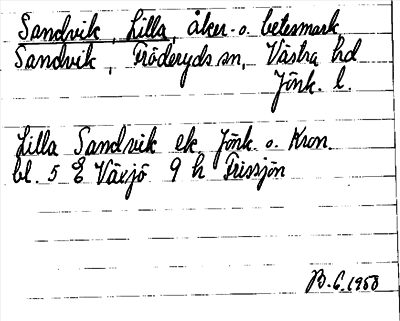 Sandvik, Lilla, åker- o. betesmark,
Sandvik, Fröderyds sn, Västra hd
Jönk. l.
Lilla Sandvik ek Jönk. o. Kron.
bl. 5 E Växjö 9 h Frissjön
B. G. 1958